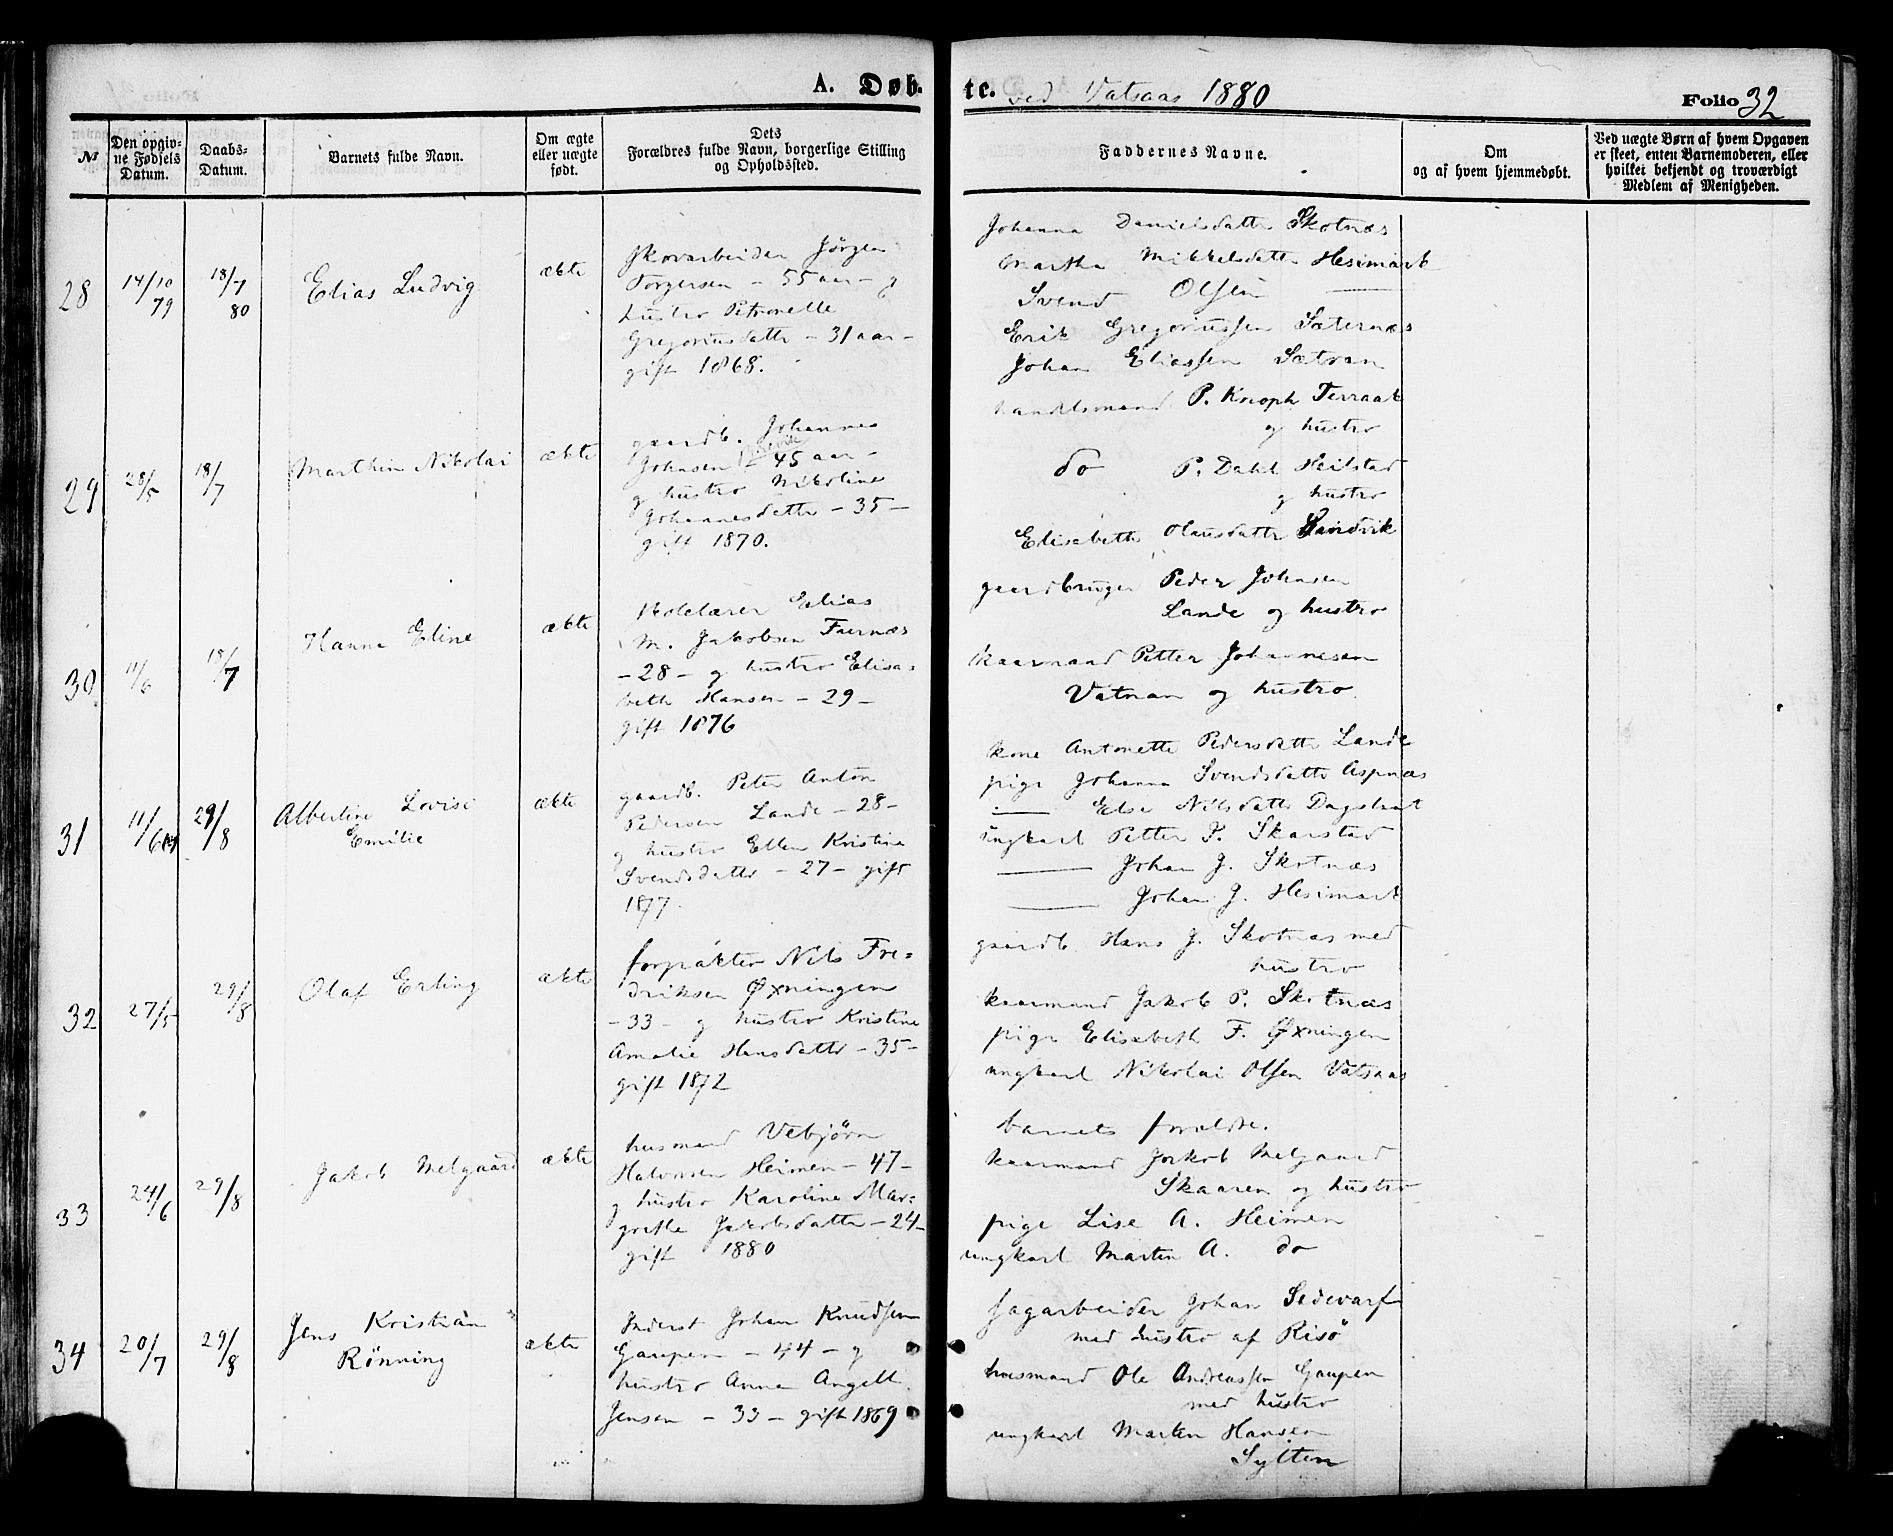 A. Døb-
te. ved Vatsaas 1880
Folio 32
№
Den opgiv-
ne Fødsels
Datum.
Daabs-
Datum.
Barnets fulde Navn.
Om ægte
eller uægte
født.
Dets
Forældres fulde Navn, borgerlige Stilling
og Opholdssted.
Faddernes Navne.
Om
og af hvem hjemmedøbt.
Ved uægte Børn af hvem Opgaven
er skeet, enten Barnemoderen, eller
hvilket bekjendt og troværdigt
Medlem af Menigheden.
28
14/10 79
18/7 80
Elias Ludvig
ækte
Skovarbeider Jörgen
Torgersen - 55 aar - g
hustro Petronelle
Gregoriusdattr - 31 aar -
gift 1868.
Johanna Danielsdattr Skotnæs
Martha Mikkelsdattr Hesimark
Svend Olsen
Erik Gregoriussen Sæternæs
Johan Eliassen Sætran
29
28/5
18/7
Marthin Nikolai
ækte
gaardb. Johannes
Johnsen - 45 aar -
g hustro Nikoline
Johannesdattr - 35 -
gift 1870.
handelsmand P. Knoph Terraak
og hustro
do P. Dahl Heilstad
g hustro
Elisabeth Olausdattr Sandvik
30
11/6
18/7
Hanna Eline
ækte
skolelærer Elias
M. Jakobsen Furnæs
- 28 - g hustro Elisa-
beth Hansen - 29 -
gift 1876
gaardbruger Peder Johnsen
Lande og hustro
kaarmand Petter Johannesen
Vatnan og hustro.
31
11/6
29/8
Albertine Lovise
Emilie
ækte
gaardb. Peter Anton
Pedersen Lande - 28 -
g hustro Ellen Kristina
Svendsdattr - 27 - gift
1877.
kone Antonette Pedersdattr Lande
pige Johanna Svendsdattr Aspnæs
Else Nilsdattr Dagslaat
ungkarl Petter P. Skarstad
Johan J. Skotnæs
Johan J. Hesimark
32
27/5
29/8
Olaf Erling
ækte
forpakter Nils Fre-
driksen Øxningen
- 33 - g hustro Kristine
Amalie Hansdattr - 35 -
gift 1872
gaardb Hans J. Skotnæs med
hustro
kaarmand Jakob P. Skotnæs
pige Elisabeth F. Øxningen
ungkarl Nikolai Olsen Vatsaas
33
24/6
29/8
Jakob Melgaard
ækte
husmand Vebjörn
Halvorsen Heimen - 47 -
g hustro Karoline Mar-
grethe Jakobsdattr - 24 -
gift 1880
barnets forældre.
kaarmand Jakob Melgaard
Skaaren og hustro
pige Lise A. Heimen
ungkarl Martin A. do
34
20/7
29/8
Jens Kristian
Rönning
ækte
Inderst Johan Knudsen
Gaupen - 44 - g
hustro Anna Angell
Jensen - 33 - gift 1869
sagarbeider Johan Sedevarf
med hustro af Risö
husmand Ole Andreassen Gaupen
med hustro
ungkarl Martin Hansen
Sylten